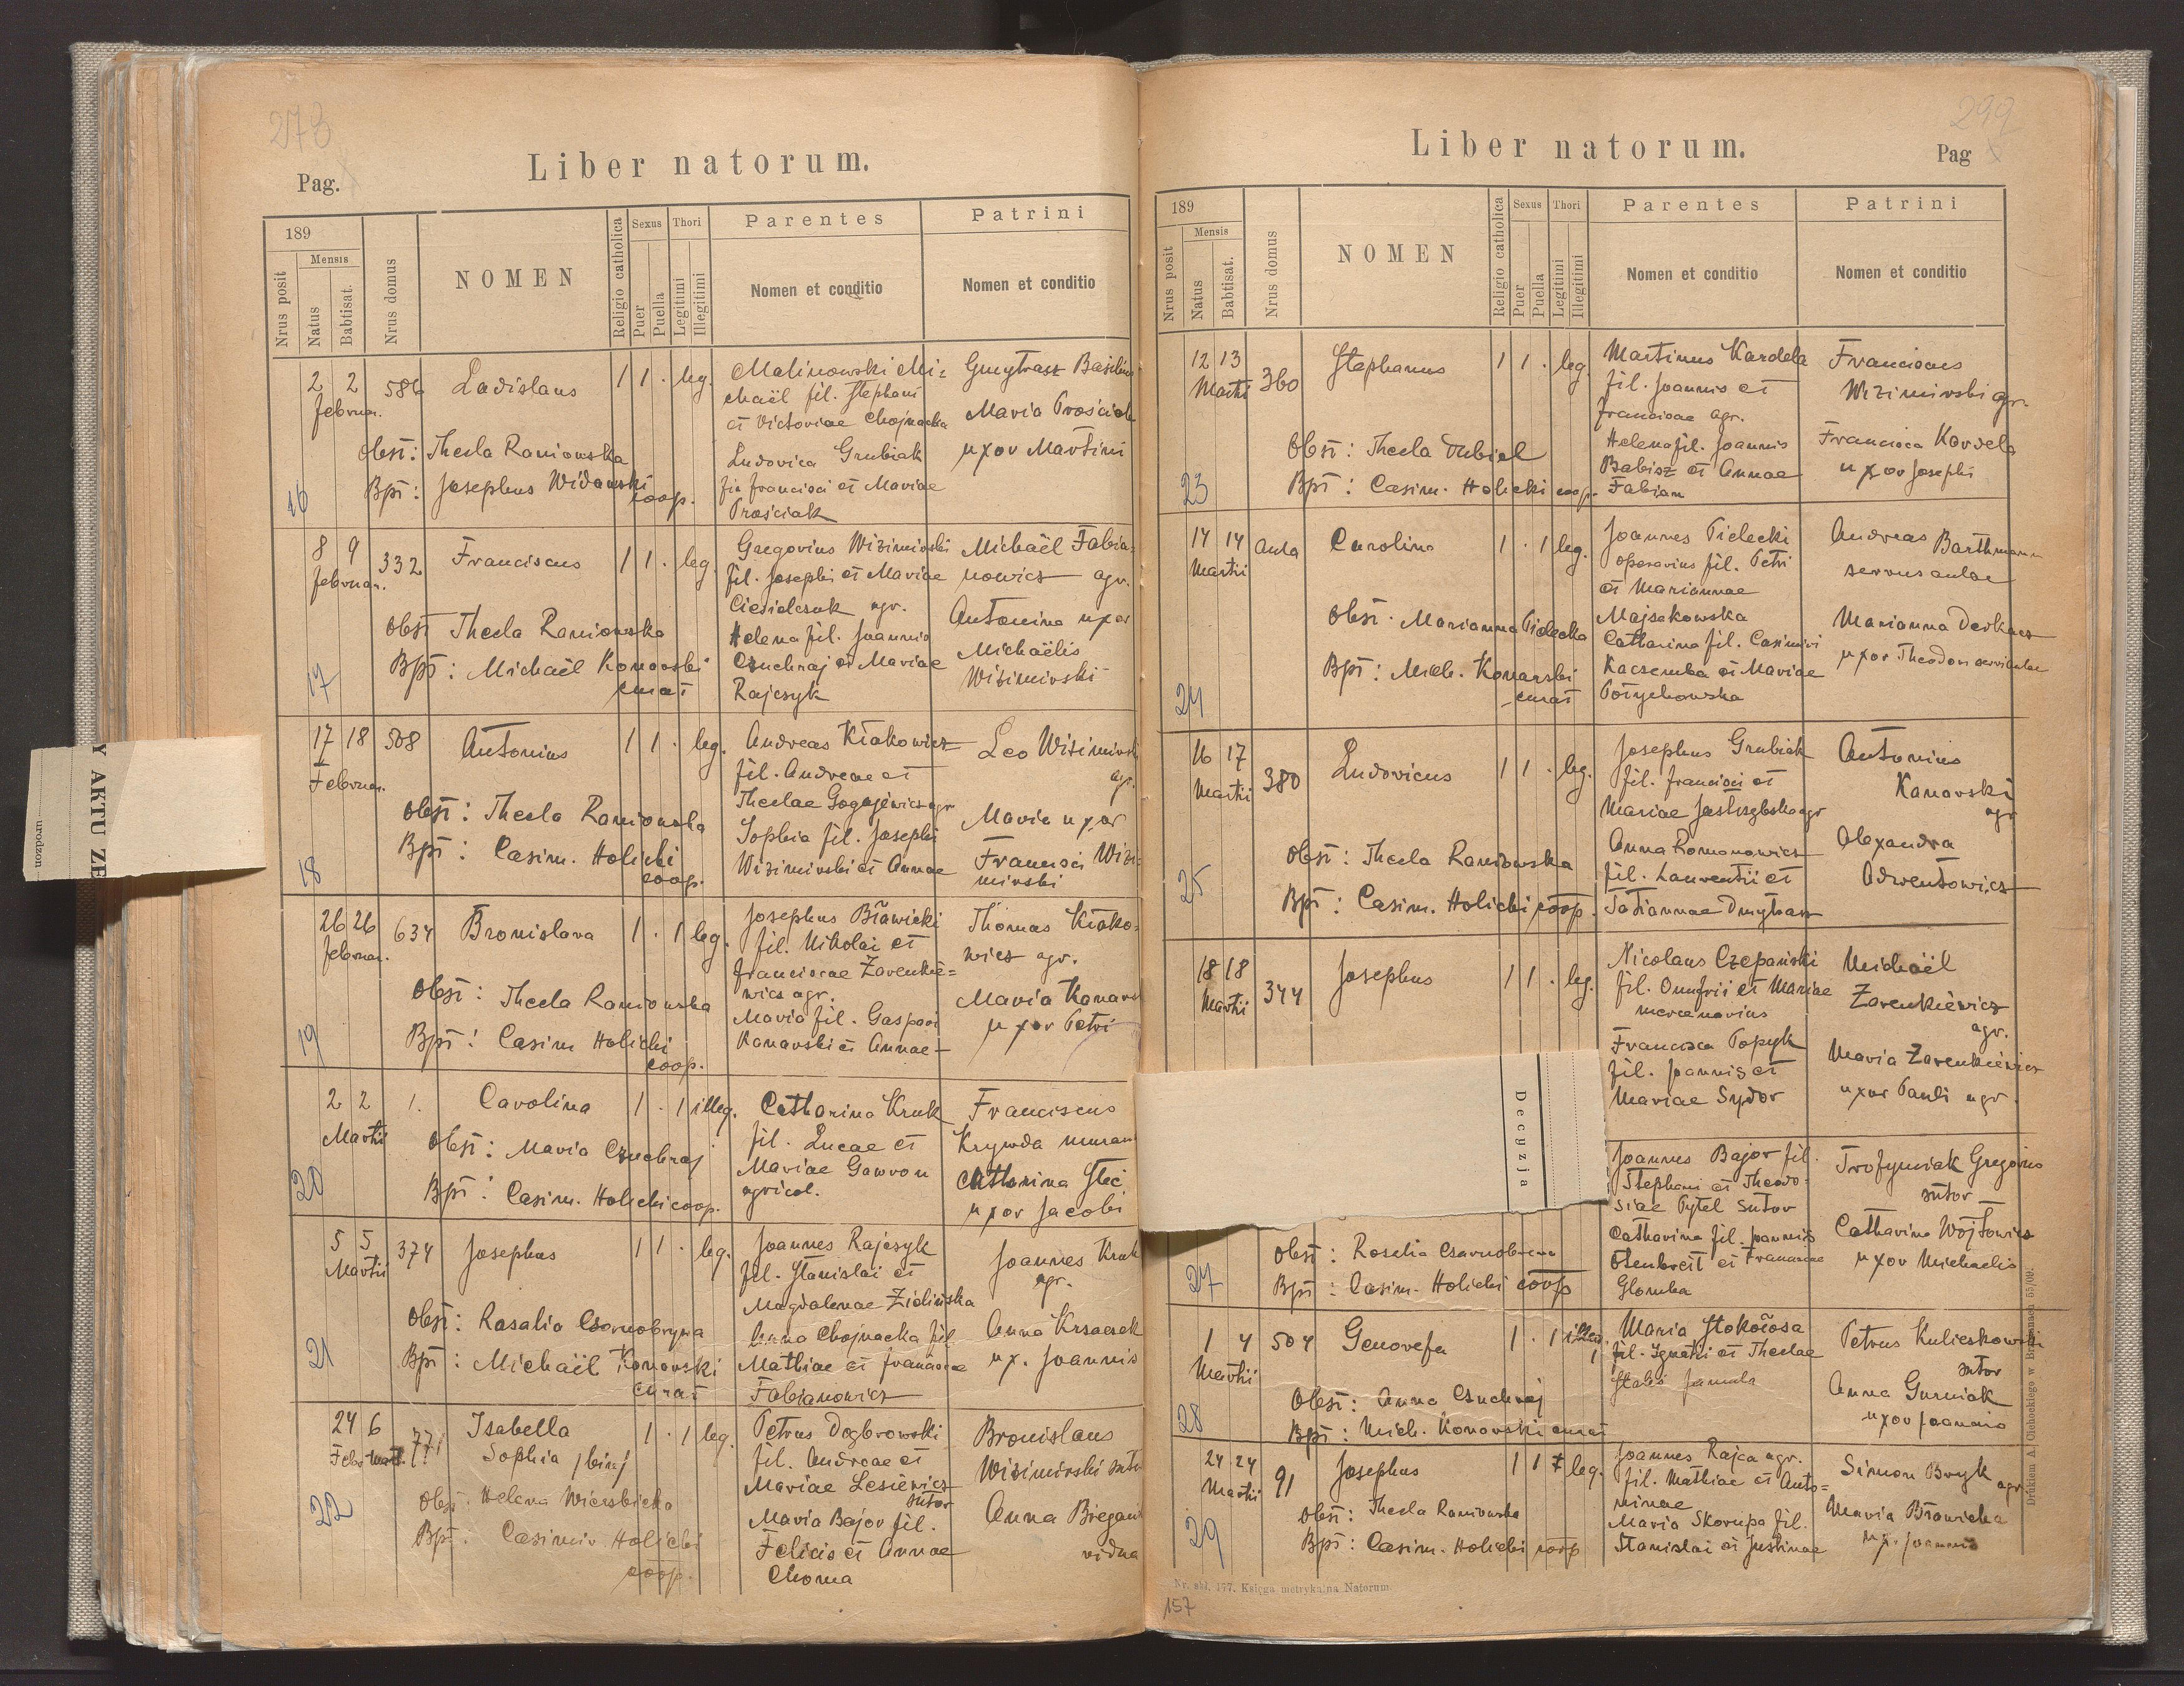 278
Liber natorum.
Pag.
189
Nrus posit
Mensis
Natus
Babtisat.
Nrus domus
NOMEN
Religio catholica
Sexus
Puer
Puella
Thori
Legitimi
Illegitimi
Parentes
Nomen et conditio
Patrini
Nomen et conditio
2 2 586 Ladislaus 1 1 . leg.
Februar.
Obst: Thecla Raniowska
Bpt: Josephus Widawski
coop.
16
Malinowski Mi=
chaël fil. Stephani
et Victoriae Chojnacka
Ludovica Grubiak
fia Francisci et Mariae
Prościak
Gmytrasz Basilius
Maria Prościak
uxor Martini
8 9 332 Franciscus 1 1 . leg.
Februar.
Obst Thecla Raniowska
Bpt: Michaël Konarski
curat
17
Gregorius Wizimirski
fil. Josephi et Mariae
Ciesielczuk agr.
Helena fil. Joannis
Czuchraj et Mariae
Rajczyk
Michaël Fabia=
nowicz agr.
Antonina uxor
Michaëlis
Wizimirski
17 18 508 Antonius 1 1 . leg.
Februar.
Obst: Thecla Raniowska
Bpt: Casim. Holicki
coop.
18
Andreas Kłakowicz
fil. Andreae et
Theclae Gogojewicz agr
Sophia fil. Josephi
Wizimirski et Annae
Leo Wizimirski
agr.
Maria uxor
Francisci Wizi=
mirski
26 26 634 Bronislava 1 . 1 leg.
Februar.
Obst: Thecla Raniowska
Bpt: Casim Holicki
coop.
19
Josephus Bławicki
fil. Nikolai et
Franciscae Zarenkie=
wicz agr.
Maria fil. Gaspari
Kanarski et Annae
Thomas Kłako=
wicz agr.
Maria Kanars
uxor Petri
2 2 1. Carolina 1 . 1 illeg.
Martii
Obst: Maria Czuchraj
Bpt: Casim. Holicki coop.
20
Catharina Kruk
fil. Lucae et
Mariae Gawron
agricol.
Franciscus
Krywda murar
Catharina Stec
uxor Jacobi
5 5 374 Josephus 1 1 . leg.
Martii
Obst: Rosalia Czarnobrywa
Bpt: Michaël Konarski
curat
21
Joannes Rajczyk
fil. Stanislai et
Magdalenae Zielińska
Anna Chojnacka fil
Mathiae et Franciscae
Fabianowicz
Joannes Kruk
agr.
Anna Krzaczek
ux. Joannis
24 6 771 Isabella 1 . 1 leg.
Febr Mart. Sophia /bin/
Obst: Helena Wierzbicka
Bpt. Casimir Holicki
coop.
22
Petrus Dąbrowski
fil. Andreae et
Mariae Lesiewicz
sutor
Maria Bajor fil.
Felicis et Annae
Choma
Bronislaus
Wizimirski sutor
Anna Biegan
vidua
Y AKTU ZE
urodzon
299
Liber natorum.
Pag
189
Nrus posit
Mensis
Natus
Babtisat.
Nrus domus
NOMEN
Religio catholica
Sexus
Puer
Puella
Thori
Legitimi
Illegitimi
Parentes
Nomen et conditio
Patrini
Nomen et conditio
12 13 360 Stephanus 1 1 . leg.
Martii
Obst: Thecla Dubiel
Bpt: Casim. Holicki coop.
23
Martinus Kardela
fil. Joannis et
Franciscae agr.
Helena fil. Joannis
Babisz et Annae
Fabian
Franciscus
Wizimirski agr.
Francisca Kardela
uxor Josephi
14 14 aula Carolina 1 . 1 leg.
Martii
Obst. Marianna Pielecka
Bpt: Mich. Konarski
curat
24
Joannes Pielecki
operarius fil. Petri
et Mariannae
Majzakowska
Catharina fil. Casimiri
Kaczemba et Mariae
Potychowska
Andreas Barthmann
servus aulae
Marianna Derkacz
uxor Theodori servi aulae
16 17 380 Ludovicus 1 1 . leg.
Martii
Obst: Thecla Raniowska
Bpt: Casim. Holicki coop.
25
Josephus Grubiak
fil. Francisci et
Mariae Jastrzębska agr
Anna Romanowicz
fil. Laurentii et
Tatiannae Dmytrasz
Antonius
Kanarski
agr
Alexandra
Adwentowicz
18 18 344 Josephus 1 1 . leg.
Martii
Nicolaus Czepański
fil. Onufrii et Mariae
mercenarius
Francisca Popyk
fil. Joannis et
Mariae Sydor
Michaël
Zarenkiewicz
agr.
Maria Zarenkiewicz
uxor Pauli agr.
Decyzja
Obst: Rosalia Czarnobrewa
Bpt: Casim. Holicki coop
27
Joannes Bajor fil.
Stephani et Theodo=
siae Pytel sutor
Catharina fil. Joannis
Ottenbreit et Franciscae
Glomba
Trofymiak Gregorius
sutor
Catharina Wojtowicz
uxor Michaelis
1 4 504 Genovefa 1 . 1 illeg.
Martii
Obst: Anna Czuchraj
Bpt: Mich. Konarski curat
28
Maria Stokłosa
fil. Ignatii et Theclae
Stales famula
Petrus Kulieskowski
sutor
Anna Gurniak
uxor Joannis
24 24 91 Josephus 1 1 leg.
Martii
Obst: Thecla Raniowska
Bpt: Casim. Holicki coop
29
Joannes Rajca agr.
fil. Mathiae et Anto=
ninae
Maria Skorupa fil.
Stanislai et Justinae
Simon Bryk
agr
Maria Bławicka
ux. Joannis
Nr. skł. 177. Księga metrykalna Natorum.
157
Drukiem A. Cichockiego w Brzeżanach 55/09.